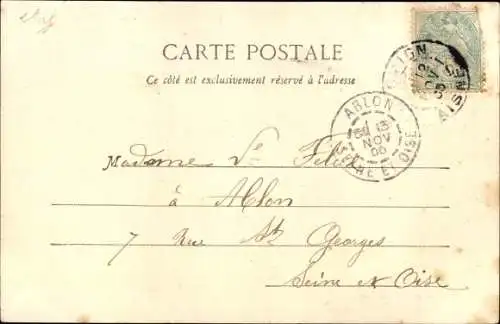 CARTE POSTALE
Ce côté est exclusivement réservé à l'adresse
ABLON
13
NOV
SEINE ET OISE
AISNE
Madame Ve Félix
à Ablon
7 Rue St Georges
Seine et Oise